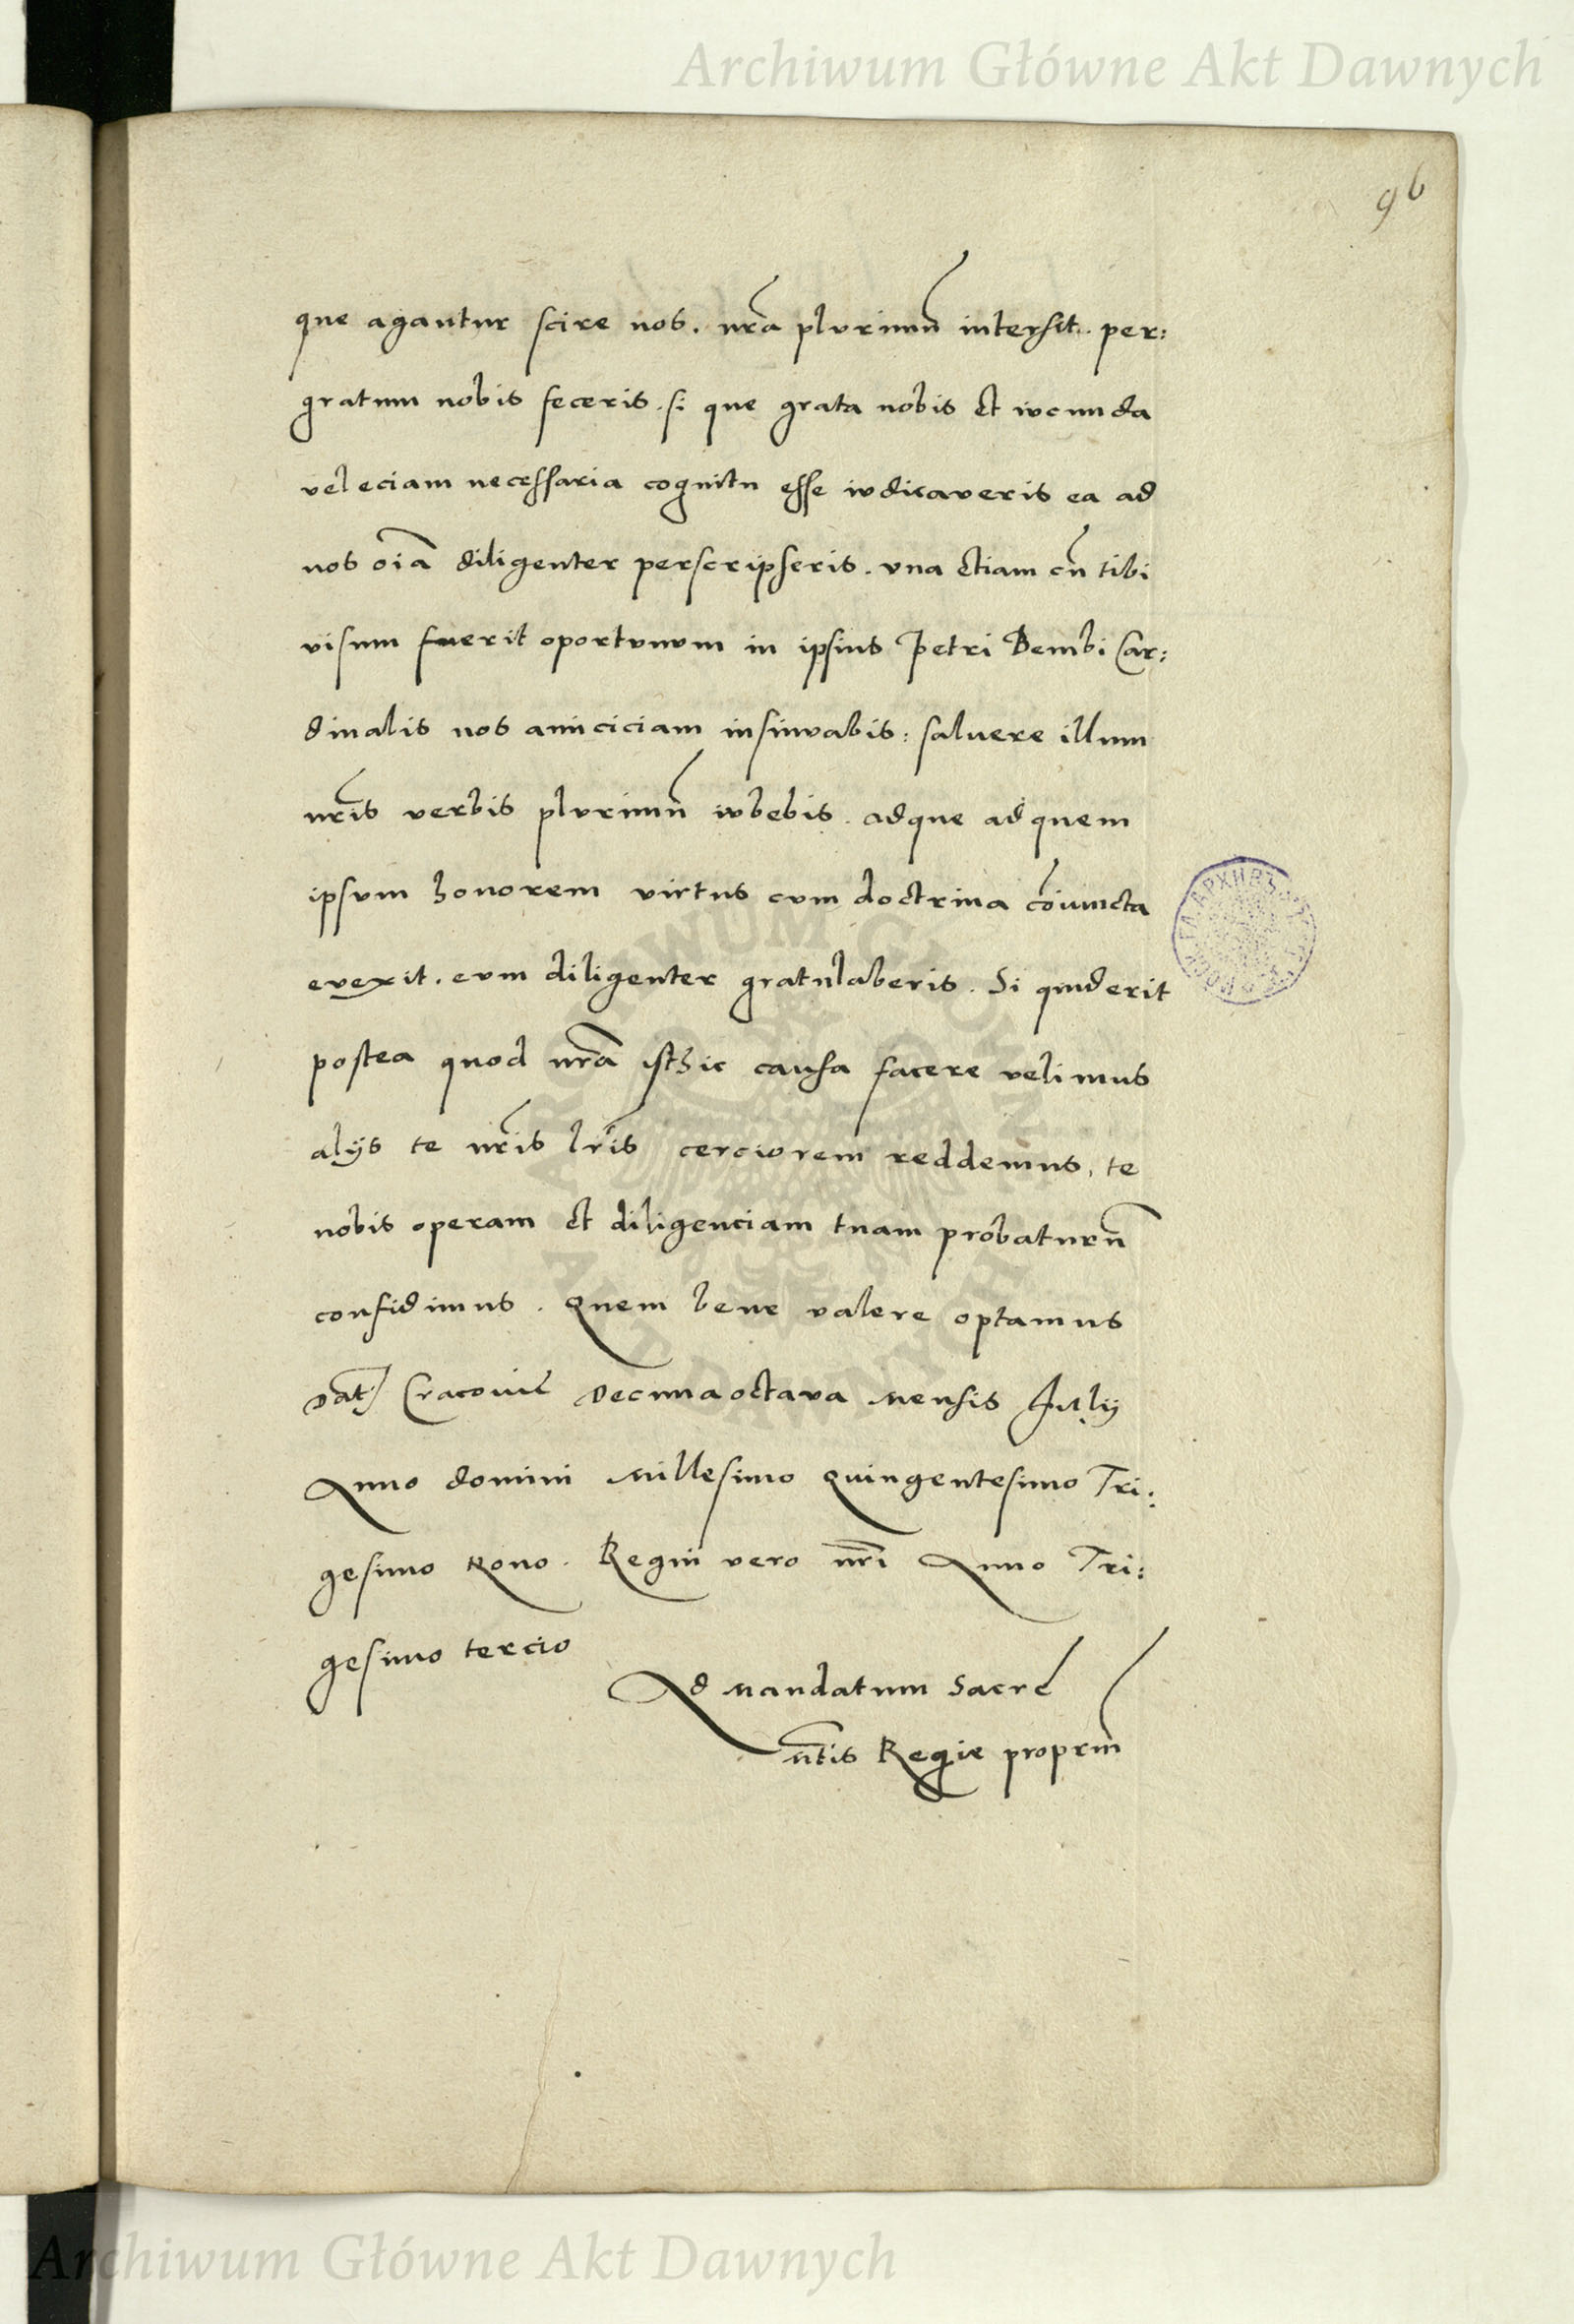 Archiwum Główne Akt Dawnych
96
que agantur scire nos. nrã plurimũ intersit. per:
gratum nobis feceris. si que grata nobis et iucunda
vel eciam necessaria cognitu esse iudicaveris ea ad
nos oĩa diligenter perscripseris. una etiam cũ tibi
visum fuerit oportunum in ipsius Petri Bembi Car:
dinalis nos amiciciam insinuabis: salvere illum
nrĩs verbis plurimũ iubebis. adque ad quem
ipsum honorem virtus cum doctrina cõiuncta
evexit. eum diligenter gratulaberis. Si quid erit
postea quod nrã isthic causa facere velimus
alijs te nrĩs lrĩs cerciorem reddemus, te
nobis operam et diligenciam tuam probaturũ
confidimus. Quem bene valere optamus
Dat̃ Cracovie Decimaoctava Mensis Julij
Anno domini Millesimo Quingentesimo Tri:
gesimo Nono. Regni vero nrĩ Anno Tri:
gesimo tercio
Ad Mandatum Sacre
Mtis Regie propriũ
ARCHIWUM GŁÓWNE
AKT DAWNYCH
Archiwum Główne Akt Dawnych